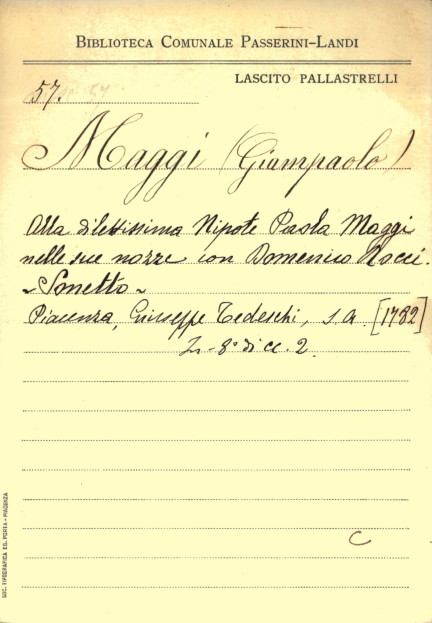 BIBLIOTECA COMUNALE PASSERINI-LANDI
LASCITO PALLASTRELLI
57.
Maggi (Giampaolo)
Alla dilettissima Nipote Paola Maggi
nelle sue nozze con Domenico Rocci.
~ Sonetto ~
Piacenza, Giuseppe Tedeschi, s. a. [1782]
In-8° di cc. 2.
C
SOC. TIPOGRAFICA ED. PORTA - PIACENZA